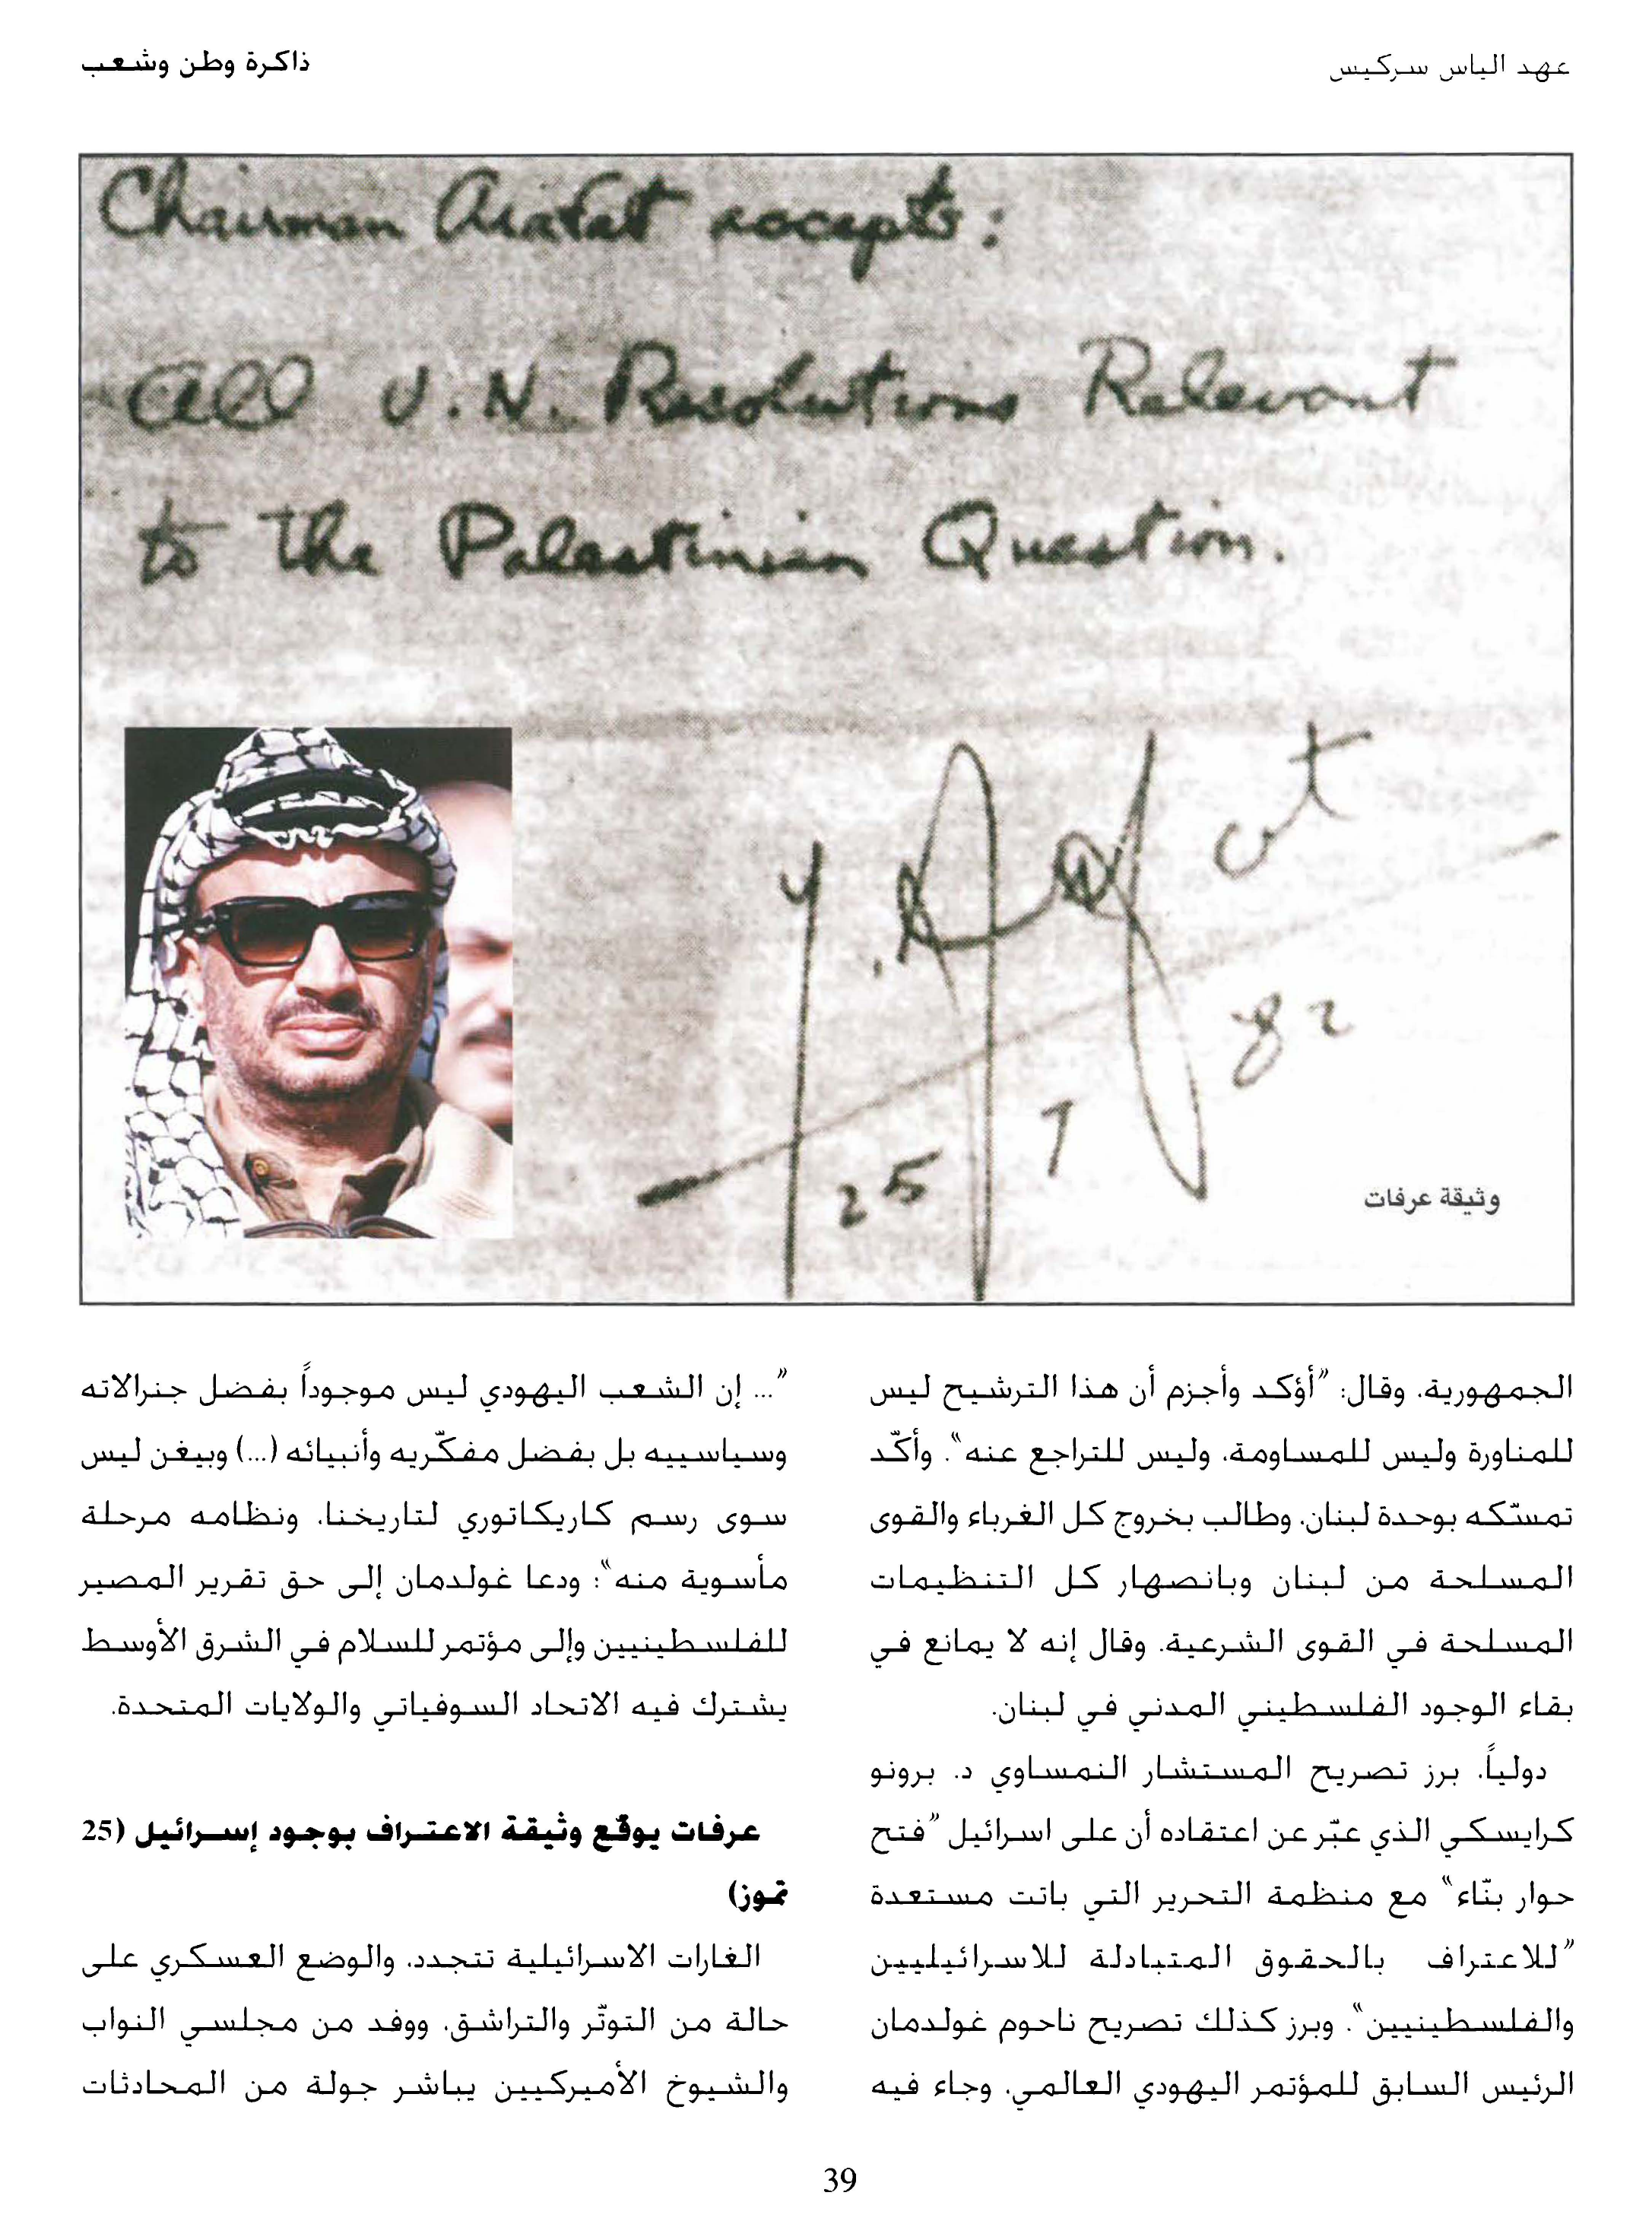 عهد الياس سركيس
ذاكرة وطن وشعب
Chairman Arafat accepts:
All U.N. Resolutions Relevant
to the Palestinian Question.
Y. Arafat
25 7 82
وثيقة عرفات
الجمهورية، وقال: "أؤكد وأجزم أن هذا الترشيح ليس
للمناورة وليس للمساومة، وليس للتراجع عنه". وأكّد
تمسّكه بوحدة لبنان، وطالب بخروج كل الغرباء والقوى
المسلحة من لبنان وبانصهار كل التنظيمات
المسلحة في القوى الشرعية. وقال إنه لا يمانع في
بقاء الوجود الفلسطيني المدني في لبنان.
دولياً، برز تصريح المستشار النمساوي د. برونو
كرايسكي الذي عبّر عن اعتقاده أن على اسرائيل "فتح
حوار بنّاء" مع منظمة التحرير التي باتت مستعدة
"للاعتراف بالحقوق المتبادلة للاسرائيليين
والفلسطينيين". وبرز كذلك تصريح ناحوم غولدمان
الرئيس السابق للمؤتمر اليهودي العالمي، وجاء فيه
"... إن الشعب اليهودي ليس موجوداً بفضل جنرالاته
وسياسييه بل بفضل مفكّريه وأنبيائه (...) وبيغن ليس
سوى رسم كاريكاتوري لتاريخنا، ونظامه مرحلة
مأسوية منه"؛ ودعا غولدمان إلى حق تقرير المصير
للفلسطينيين وإلى مؤتمر للسلام في الشرق الأوسط
يشترك فيه الاتحاد السوفياتي والولايات المتحدة.
عرفات يوقّع وثيقة الاعتراف بوجود إسرائيل (25
تموز)
الغارات الاسرائيلية تتجدد، والوضع العسكري على
حالة من التوتّر والتراشق، ووفد من مجلسي النواب
والشيوخ الأميركيين يباشر جولة من المحادثات
39